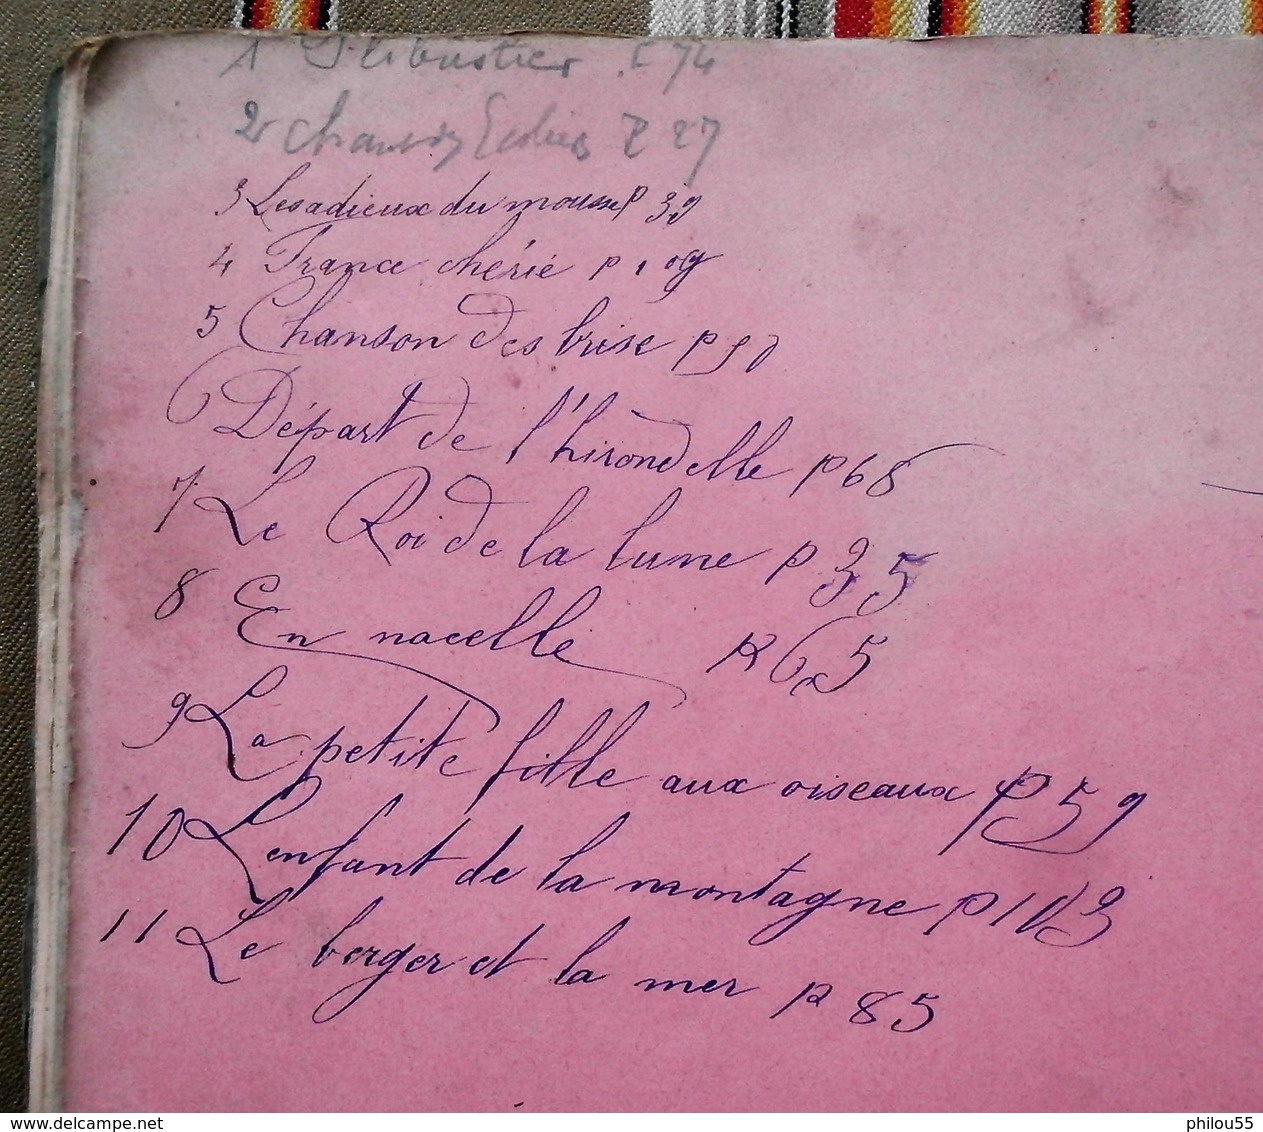 1 Flibustier P 74
2 chanson Ecoliers P 27
3 Les adieux du mousse P 39
4 France chérie P 109
5 Chanson des brise P 90
6 Départ de l'hirondelle P 68
7 Le Roi de la lune P 35
8 En nacelle P 65
9 La petite fille aux oiseaux P 59
10 L'enfant de la montagne P 103
11 Le berger et la mer P 85
delcampe.net
philou55